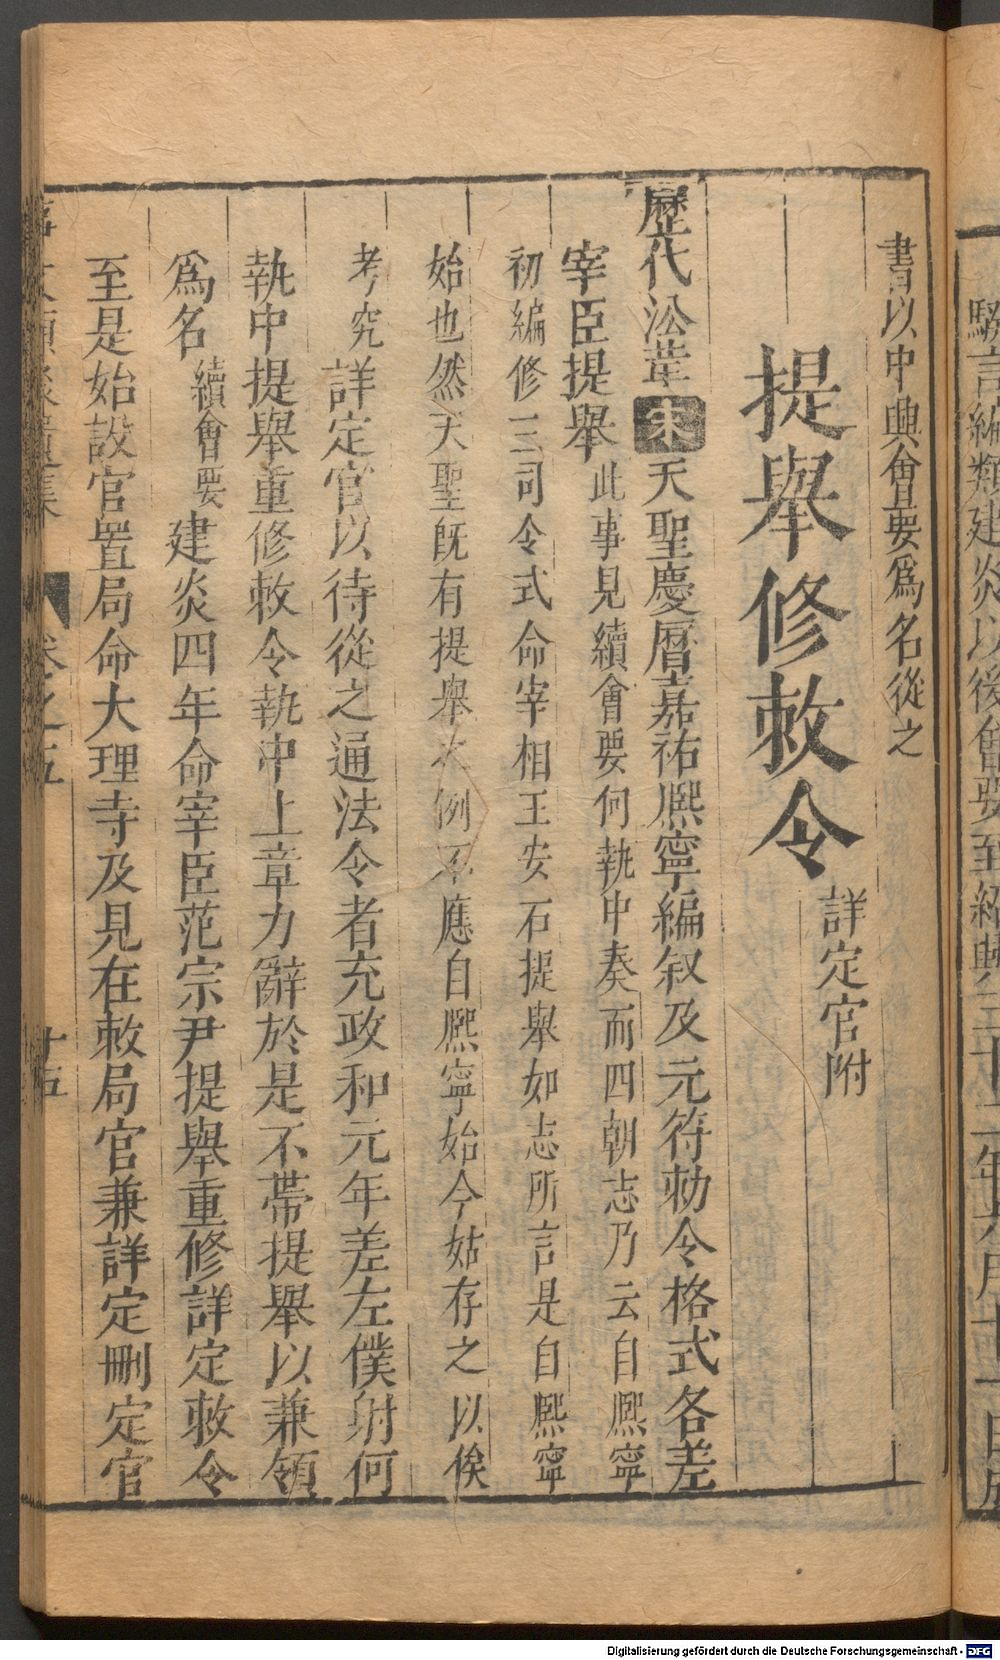 驗言編類建炎以後會要至紹興三十二年六月十一日成
書以中興會要爲名從之
提舉修敕令 詳定官附
歷代沿革 宋 天聖慶曆嘉祐熈寧編敘及元符勑令格式各差
宰臣提舉 此事見續會要何執中奏而四朝志乃云自熈寧
初編修三司令式命宰相王安石提舉如志所言是自熈寧
始也然天聖旣有提舉之例不應自熈寧始今姑存之以俟
考究 詳定官以待從之通法令者充政和元年差左僕射何
執中提舉重修敕令執中上章力辭於是不帶提舉以兼領
爲名 續會要 建炎四年命宰臣范宗尹提舉重修詳定敕令
至是始設官置局命大理寺及見在敕局官兼詳定刪定官
卷之五
十五
Digitalisierung gefördert durch die Deutsche Forschungsgemeinschaft - DFG